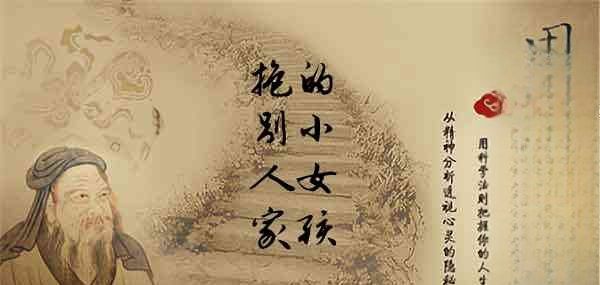 抱别人家
的小女孩
从精神分析透视心灵的隐秘
用科学法则把握你的人生